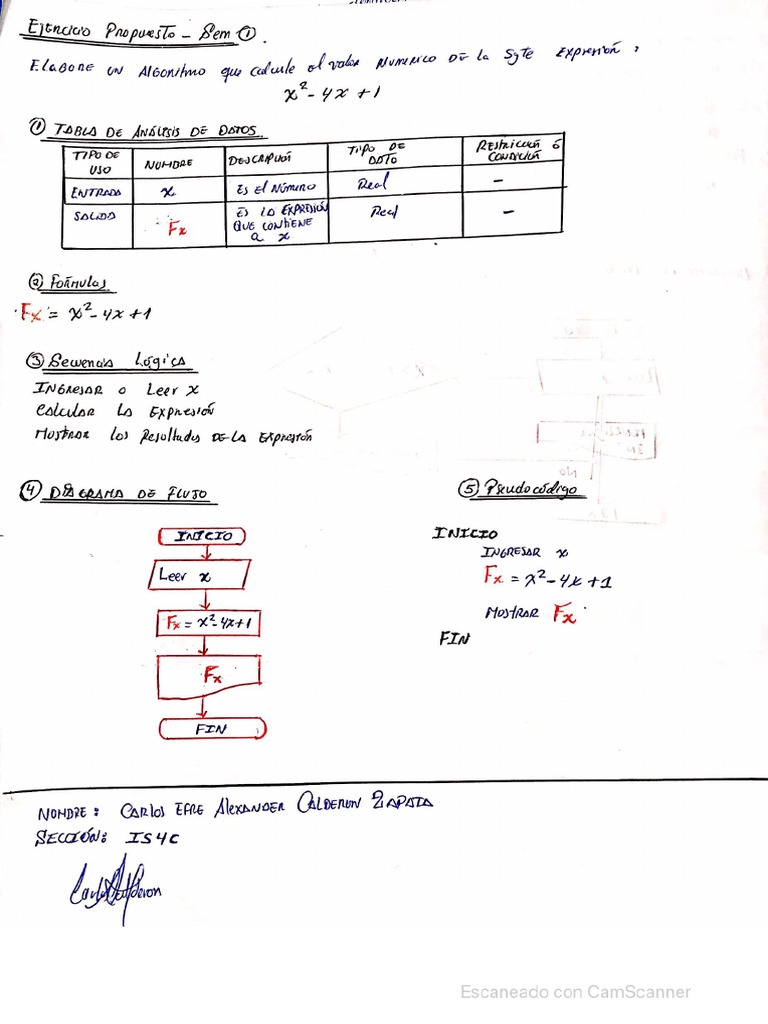 Ejercicio Propuesto - Sem ①.
Elabore un Algoritmo que calcule el valor numerico de la Sgte Expresión:
x² - 4x + 1
① TABLA DE ANÁLISIS DE DATOS.
TIPO DE USO NOMBRE DESCRIPCIÓN TIPO DE DATO RESTRICCIÓN Ó CONDICIÓN
ENTRADA x ES El NÚMERO Real -
SALIDA Fx ES LA EXPRESIÓN QUE CONTIENE A x Real -
② Fórmulas
Fx = x² - 4x + 1
③ Secuencia Lógica
INGRESAR o Leer x
Calcular La Expresión
Mostrar los Resultados DE LA Expresión
④ DIAGRAMA DE FLUJO
INICIO
Leer x
Fx = x² - 4x + 1
Fx
FIN
⑤ Pseudocódigo
INICIO
INGRESAR x
Fx = x² - 4x + 1
MOSTRAR Fx
FIN
NOMBRE: CARLOS EFRE ALEXANDER CALDERON ZAPATA
SECCIÓN: IS4C
Carlos Calderon
Escaneado con CamScanner